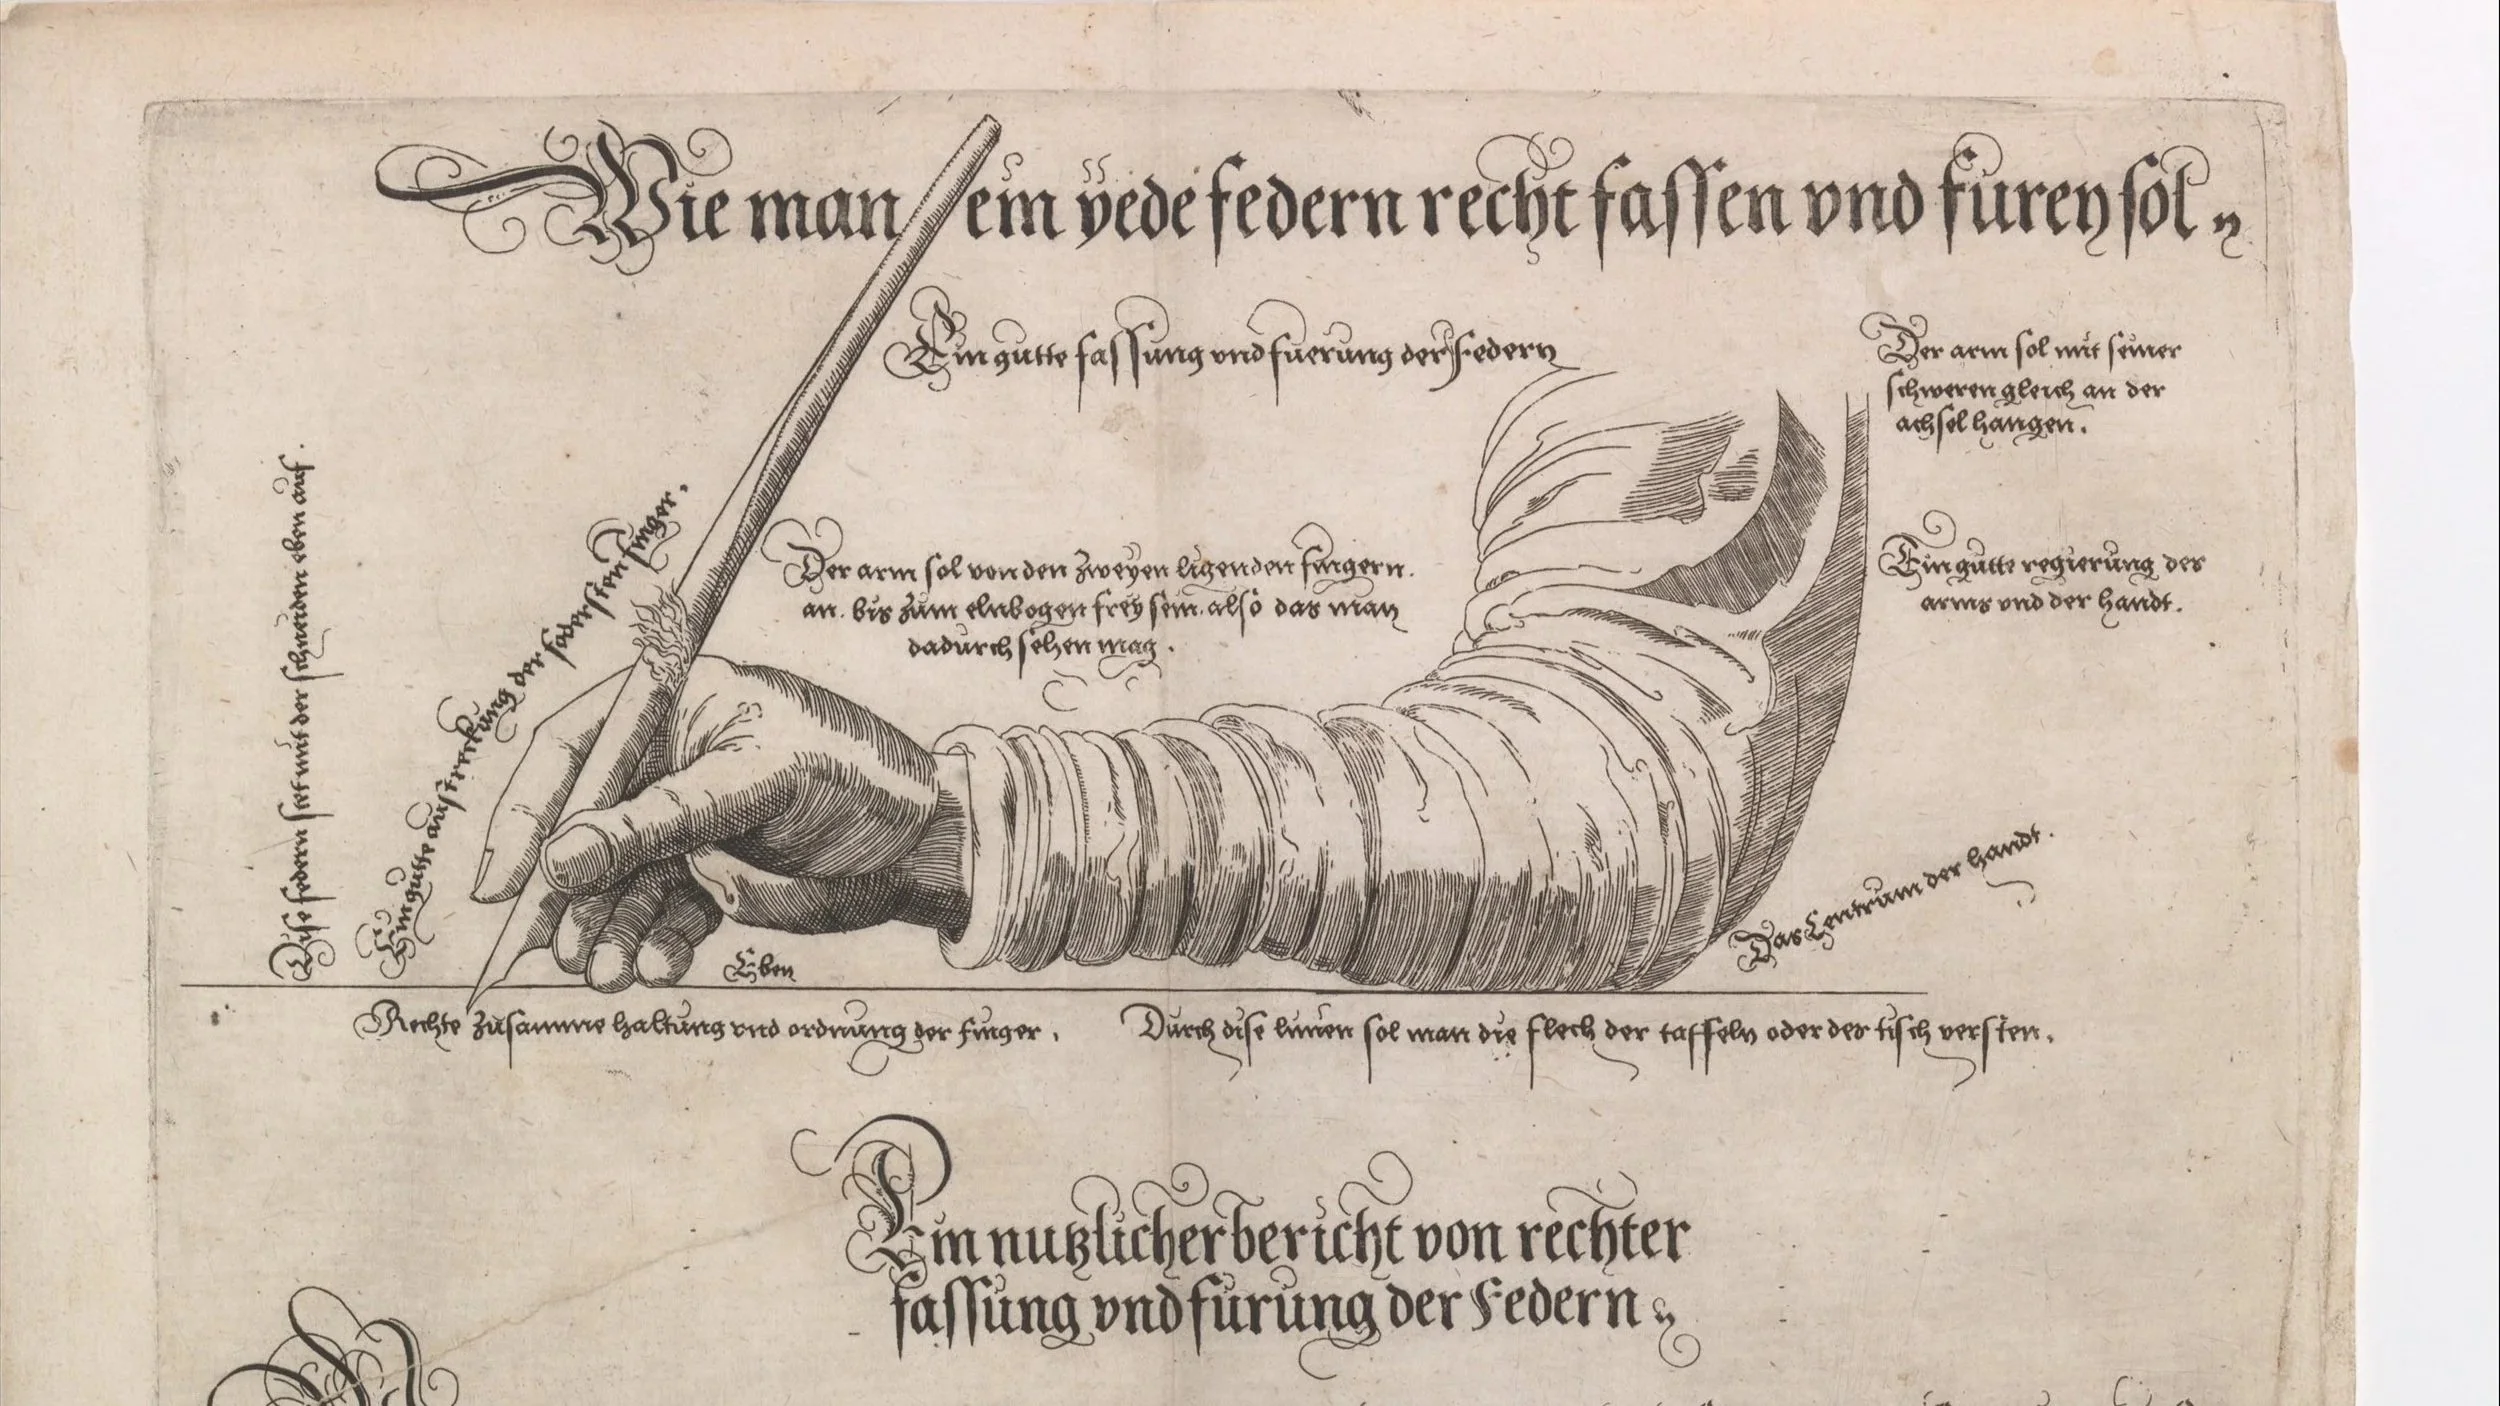 Wie man ein yede federn recht fassen vnd furen sol
Ein gutte fassung vnd fuerung der Federn
Der arm sol mit seiner
schweren gleich an der
achsel hangen.
Dise federn stet mit der schneiden eben auf.
Ein gutte austreckung der fodersten finger.
Der arm sol von den zweyen ligenden fingern.
an. bis zum elnbogen frey sein. also das man
dadurch sehen mag.
Ein gutte regierung des
arms vnd der handt.
Das Centrum der handt.
Eben
Rechte zusamme haltung vnd ordnung der finger.
Durch dise linien sol man die flech der taffeln oder des tisch versten.
Ein nutzlicher bericht von rechter
fassung vnd furung der Federn